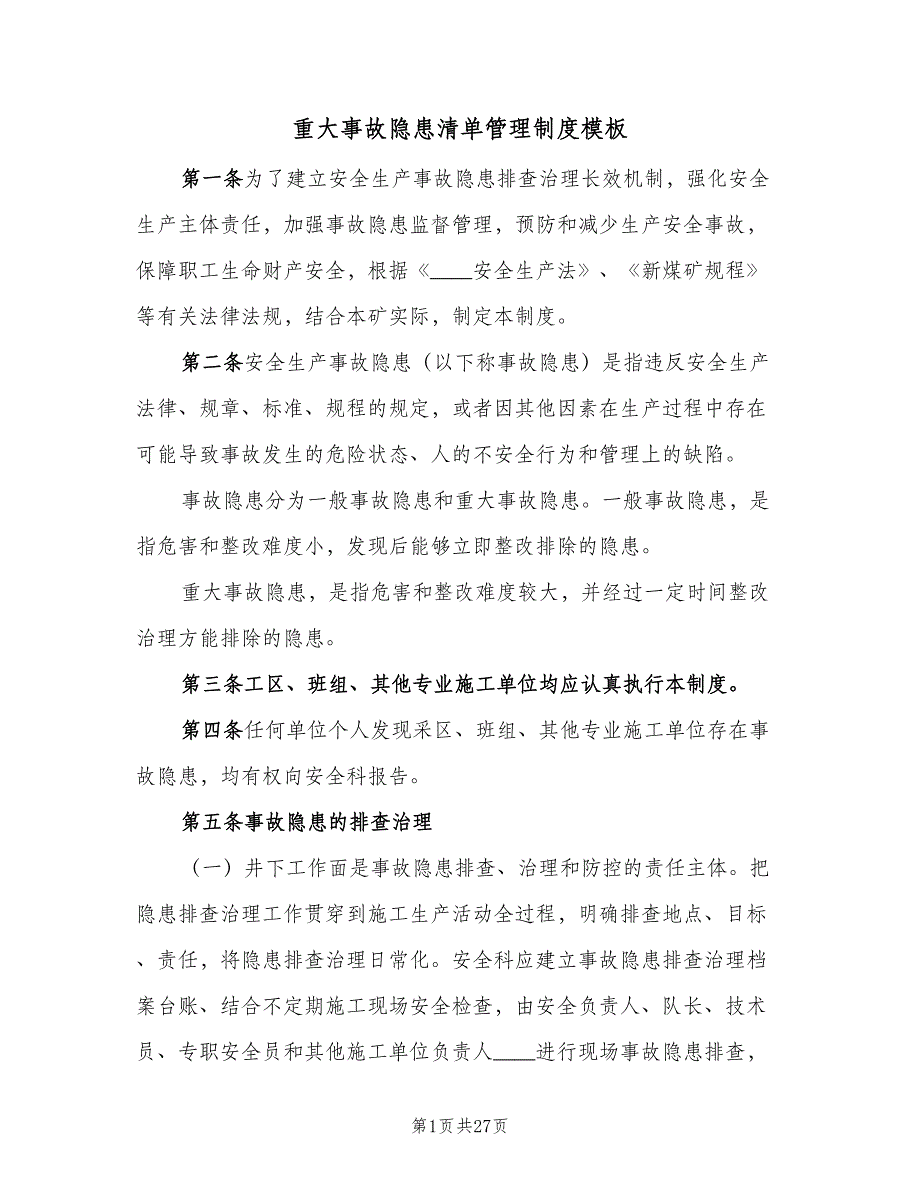 重大事故隐患清单管理制度模板
第一条为了建立安全生产事故隐患排查治理长效机制，强化安全
生产主体责任，加强事故隐患监督管理，预防和减少生产安全事故，
保障职工生命财产安全，根据《____安全生产法》、《新煤矿规程》
等有关法律法规，结合本矿实际，制定本制度。
第二条安全生产事故隐患（以下称事故隐患）是指违反安全生产
法律、规章、标准、规程的规定，或者因其他因素在生产过程中存在
可能导致事故发生的危险状态、人的不安全行为和管理上的缺陷。
事故隐患分为一般事故隐患和重大事故隐患。一般事故隐患，是
指危害和整改难度小，发现后能够立即整改排除的隐患。
重大事故隐患，是指危害和整改难度较大，并经过一定时间整改
治理方能排除的隐患。
第三条工区、班组、其他专业施工单位均应认真执行本制度。
第四条任何单位个人发现采区、班组、其他专业施工单位存在事
故隐患，均有权向安全科报告。
第五条事故隐患的排查治理
（一）井下工作面是事故隐患排查、治理和防控的责任主体。把
隐患排查治理工作贯穿到施工生产活动全过程，明确排查地点、目标
、责任，将隐患排查治理日常化。安全科应建立事故隐患排查治理档
案台账、结合不定期施工现场安全检查，由安全负责人、队长、技术
员、专职安全员和其他施工单位负责人____进行现场事故隐患排查，
第1页共27页